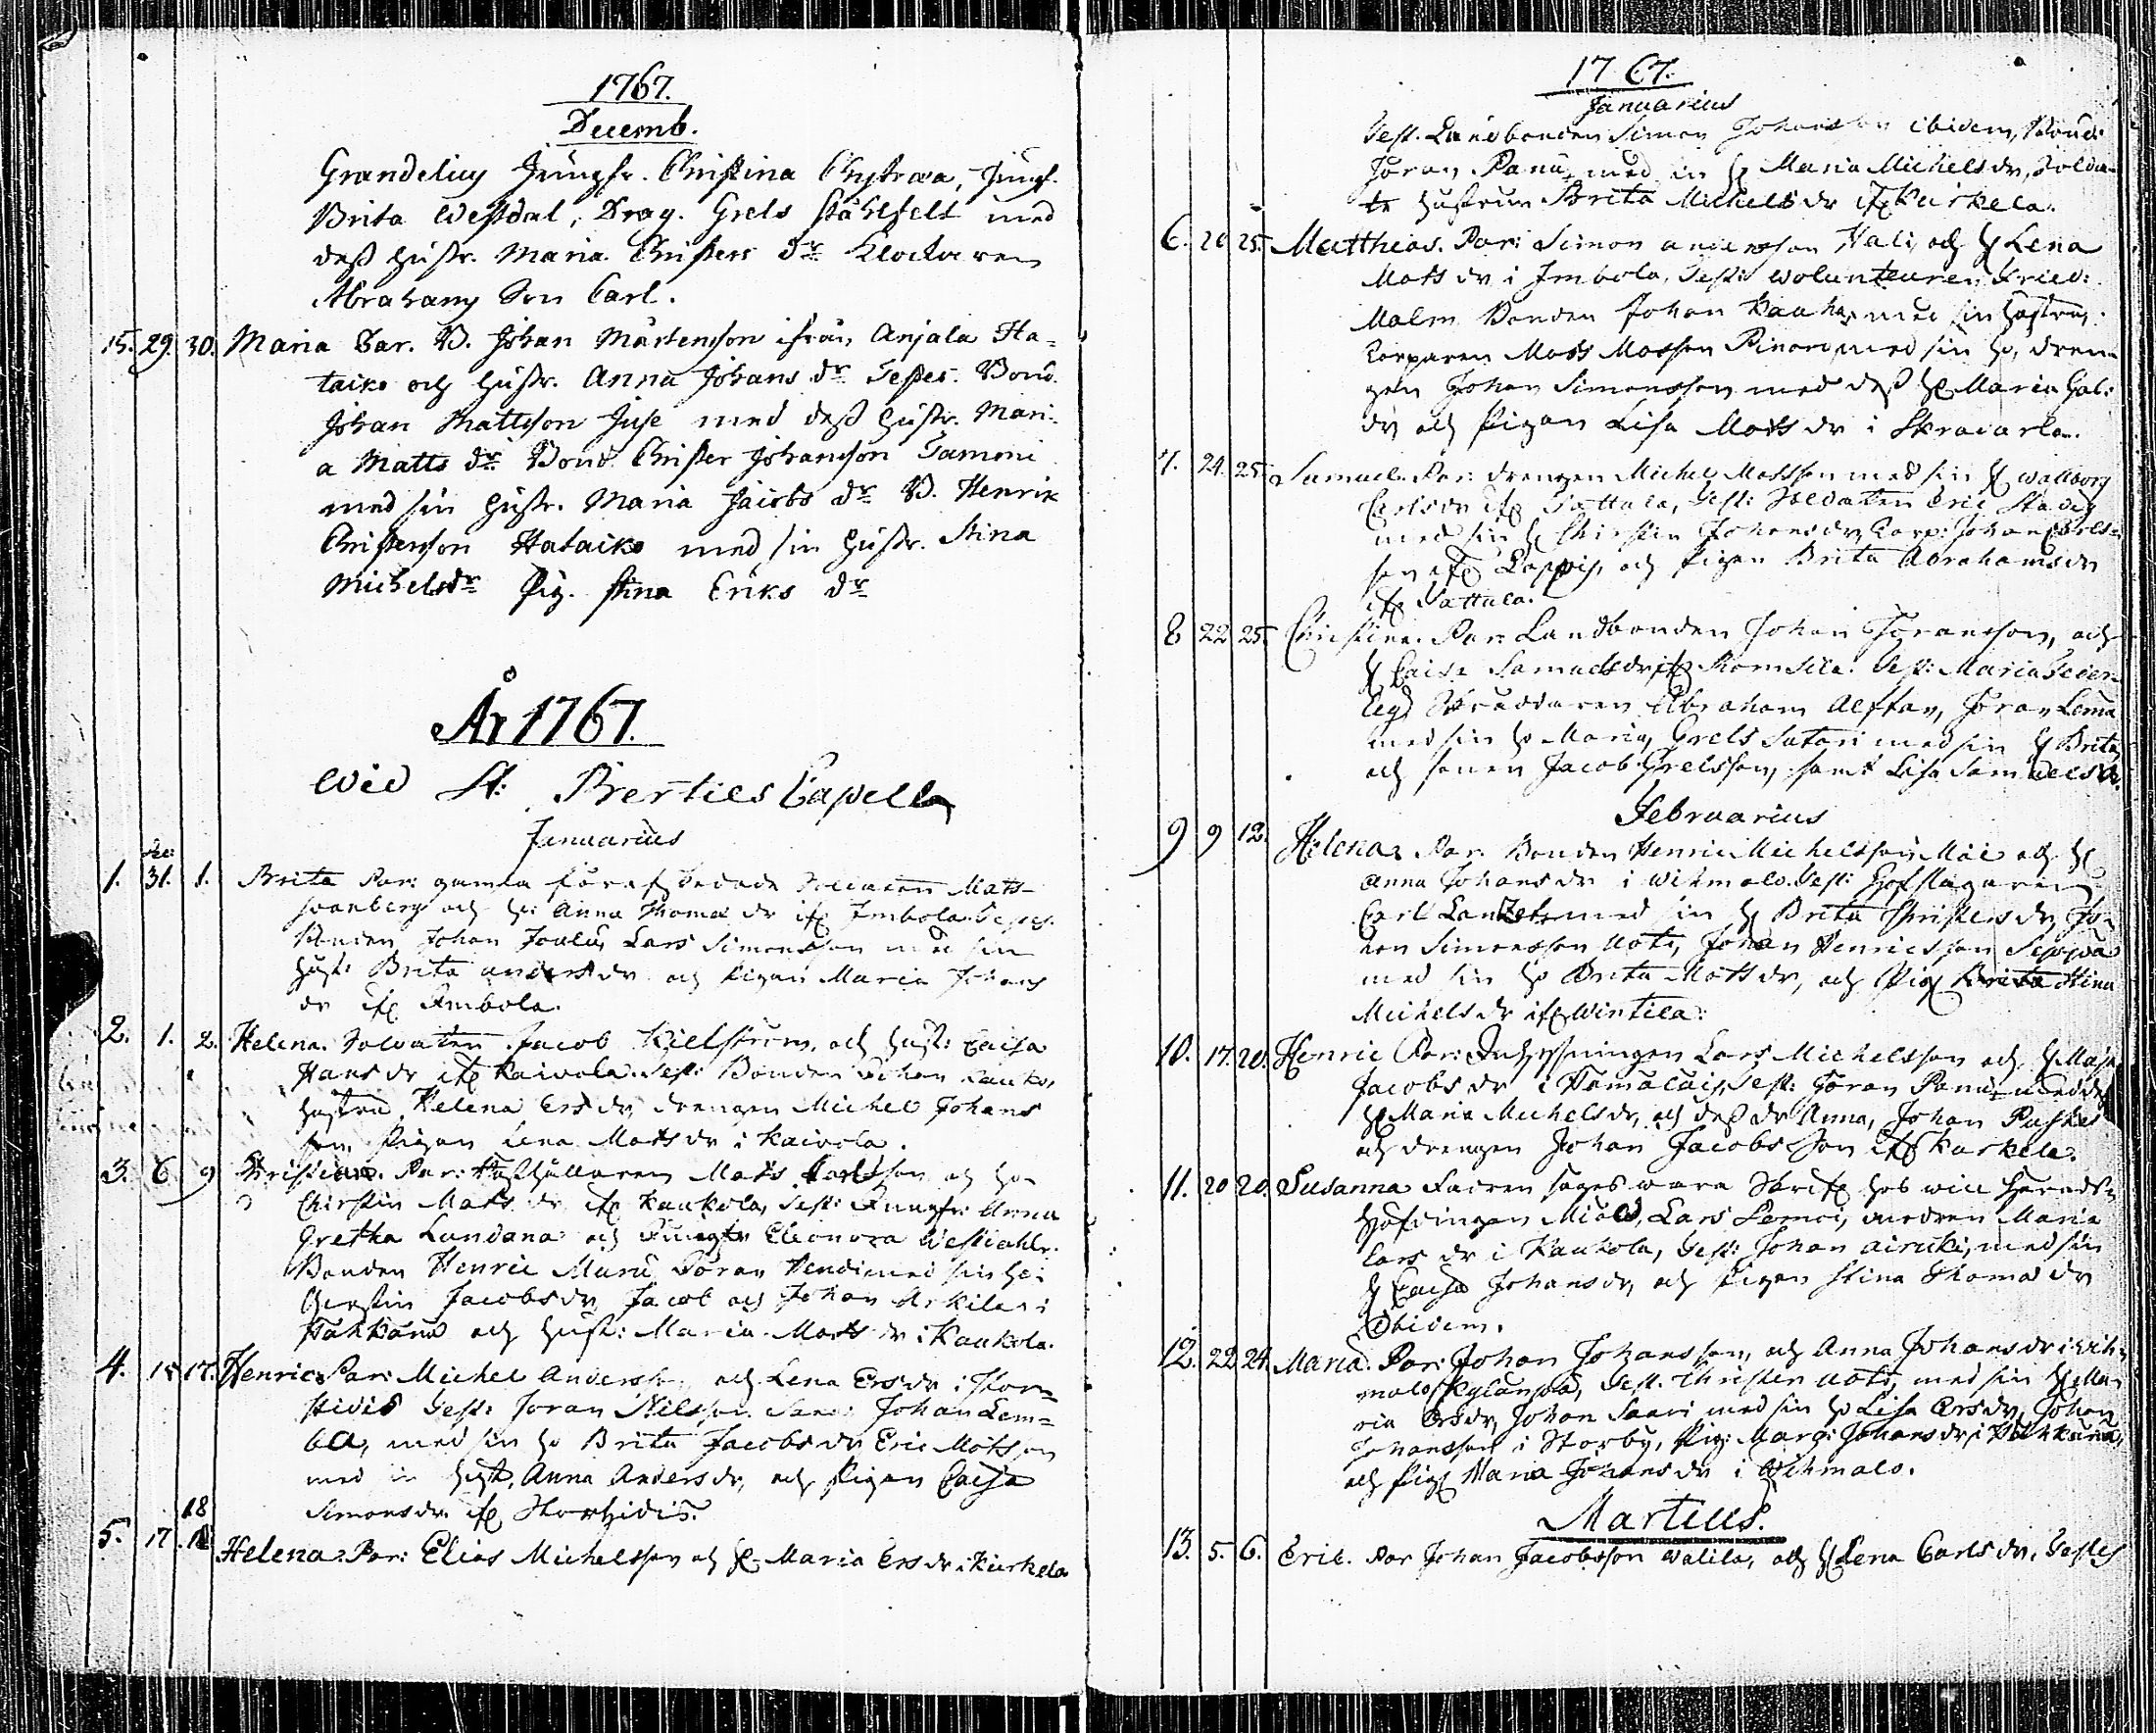 1767.
Decemb.
Grandelius Jungfr. Christina Chytræa, Jungf.
Brita Westdal, Drag. Grels Ståhlfelt med
dess hustr. Maria Christers dr Klockaren
Abrahams Son Carl.
15. 29. 30. Maria Par. B. Johan Mårtenson ifrån Anjala Ha=
taiko och hustr. Anna Johans dr Testes. Bond.
Johan Mattsson Juse med dess hustr. Mari=
a Matts dr Bond. Christer Johansson Tammi
med sin hustr. Maria Jacobs dr B. Henrik
Christerson Hataiko med sin hustr. Stina
Michelsdr Pig. Stina Eriks dr
År 1767.
wid St: Bertils Capell
Januarius
Dec:
1. 31. 1. Brita Par: gamla förafskedade Soldaten Matts
Svanberg och h: Anna Thomæ dr ifr Imbola. Testes.
Bonden Johan Joulu, Lars Simonsson med sin
hust: Brita Anders dr och Pigan Maria Johans
dr ifr Imbola.
2. 1. 2. Helena. Soldaten Jacob Kiellström, och hust: Caisa
Hans dr ifr Kaivola. Test: Bonden Johan
hustru Helena Ers dr drengen Michel Johans
son, Pigan Lena Matts dr i Kaivola.
3. 6. 9 Christian. Par: Mats son och h:
Chirstin Mats dr ifr Kaukola, Test: Jungfr: Anna
Gretha Lundana och Jungfr Elionora Westdahl.
Bonden Henric Muru Jöran Hendi med sin h:
Chirstin Jacobs dr, Jacob och Johan Arkila i
Häkkänä och hust: Maria Mats dr i Kaukola.
4. 15 17. Henric Par: Michel Andersson och Lena Ers dr i Stor=
hidis Test: Jöran Nilsson Johan Lem=
ba, med sin h. Brita Jacobs dr Eric Motsson
med sin hust. Anna Anders dr, och Pigan Caisa
18 Simons dr. ifr Storhidis.
5. 17. 18 Helena. Par: Elias Michelsson och h. Maria Ers dr i Kurkela
1767.
Januarius
Test. Landbonden Simon Johansson ibidem, Bond:
Jöran Panu med sin h Maria Michels dr, Solda=
te hustrun Brita Michels dr ifr Kurkela.
6. 20 25. Matthias. Par: Simon Andersson Hali, och h Lena
Mats dr i Imbola, Test: Wolunteuren Fried:
Malm Bonden Johan med sin hustru,
Torparen Mats Matsson med sin h, dren=
gen Johan Simonsson med dess h Maria Gab:
dr och Pigan Lisa Mats dr i Skraiarla.
7. 24. 25. Samuel. Par: drengen Michel Matsson med sin h Wallborg
Carls dr ifr Tattula, Test: Soldaten Eric Stadig
med sin h Chirstin Johans dr, Torp: Johan Carls=
son ifr Lappis, och Pigan Brita Abrahams dr
ifr Tattula.
8 22 25. Christina. Par: Landbonden Johan Jöransson, och
h Caisa Samuels dr ifr Romsila. Test: Maria
Skreddaren Abraham Alftan, Jöran Lemu
med sin h Maria, Grels Sutari med sin h Brita,
och sonen Jacob Grelsson, samt Lisa Samuels dr.
Februarius
9 9 12. Helena. Par: Bonden Henric Michelsson Mäi och h
Anna Johans dr i Wihmalo. Test: Hofslagaren
Carl med sin h Brita Christers dr, Jo=
han Simonsson Uoti, Johan Henricsson Seppä
med sin h Brita Mats dr, och Pig Stina
Michels dr ifr Wintila:
10. 17. 20. Henric Par: Inhysningen Lars Michelsson och h Maja
Jacobs dr i Hämäläis, Test: Jöran Panu med dess
h Maria Michels dr, och dess dr Anna, Johan Puskes
och drengen Johan Jacobsson ifr Karkela.
11. 20 20. Susanna Fadren säges wara Skrifv. hos will härads
höfdingen Lars Lemoi, modren Maria
Lars dr i Kaukola, Test: Johan Airicki, med sin
h Caisa Johans dr, och Pigan Stina Thomæ dr
ibidem.
12. 22 24. Maria. Par: Johan Johansson, och Anna Johans dr i Wih=
malo Kylänpää, Test. Christer Uoti, med sin h Ma=
ria Ers dr, Johan Saari med sin h Lisa Ers dr, Johan
Johansson i Storby, Pig: Marg: Johans dr i Häkkänä,
och Pig Maria Johans dr i Wihmalo.
Martius.
13. 5. 6. Eric. Par Johan Jacobsson Walila, och h Lena Carls dr. Testes